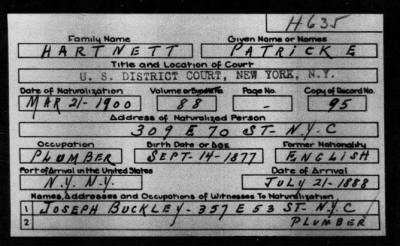 H635
Family Name Given Name or Names
HARTNETT PATRICK E
Title and Location of Court
U. S. DISTRICT COURT, NEW YORK, N.Y.
Date of Naturalization Volume or Bundle No. Page No. Copy of Record No.
MAR 21-1900 88 - 95
Address of Naturalized Person
309 E 70 ST- N.Y.C
Occupation Birth Date or Age Former Nationality
PLUMBER SEPT-14-1877 ENGLISH
Port of Arrival in the United States Date of Arrival
N.Y. N.Y. JULY 21-1888
Names, Addresses and Occupations of Witnesses To Naturalization
1 JOSEPH BUCKLEY-357 E 53 ST-N.Y.C
2 PLUMBER